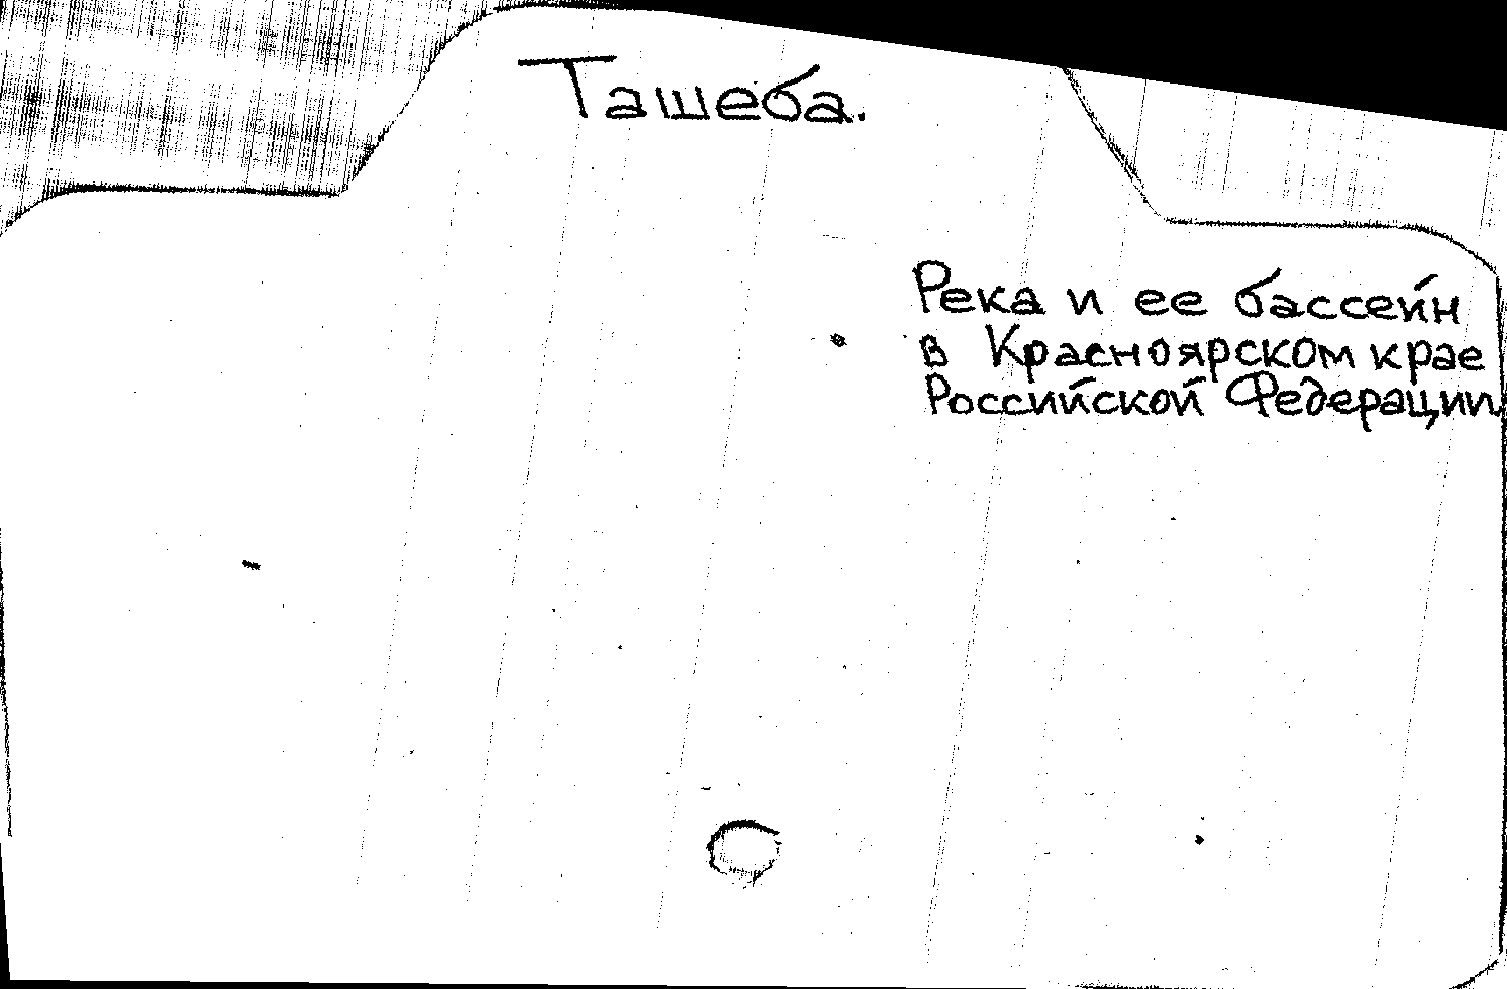 Ташеба.
Река и ее бассейн
в Красноярском крае
Российской Федерации